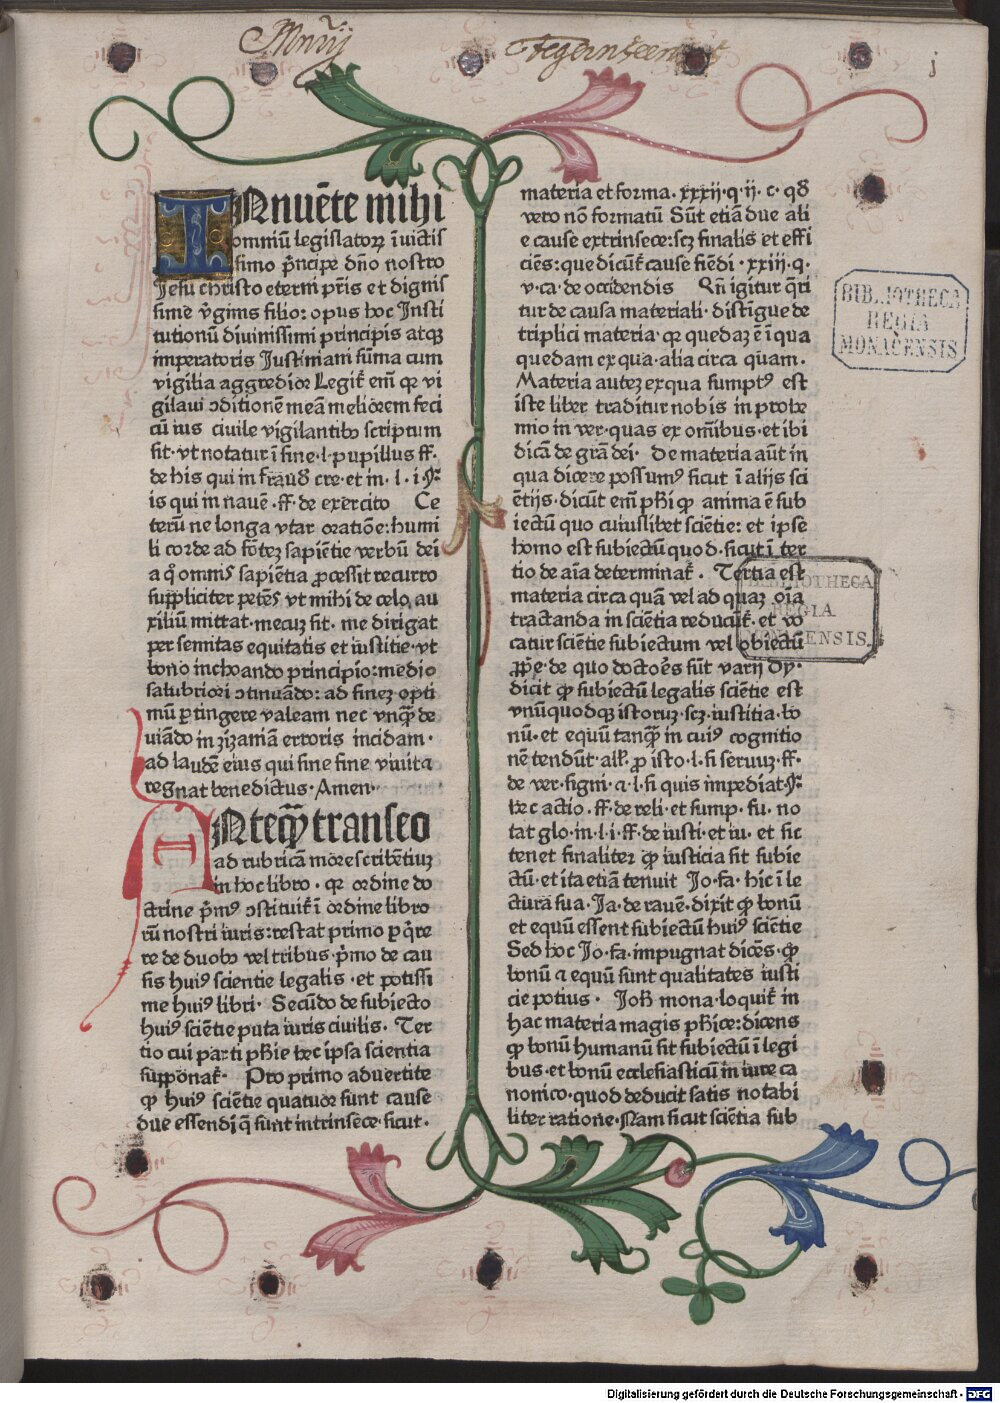 Tegernseensis
j
INnuēte mihi
omniū legislatoꝝ ī uictis
simo p̄ncipe dño nostro
Jesu christo eterni pr̄is et dignis
sime v̄ginis filio: opus hoc Insti
tutionū diuinissimi principis atqꝫ
imperatoris Justiniani sūma cum
vigilia aggredior Legit̄ em̄ qꝛ vi
gilaui ↄditionē meā meliorem feci
cū ius ciuile vigilantibꝰ scriptum
sit· vt notatur ī fine·l·pupillus ff·
de his qui in fraud̄ cre·et in·l·i·
is qui in nauē·ff·de exercito Ce
terū ne longa vtar oratiōe: humi
li corde ad fōteꝫ sapiētie verbū dei
a q̊ omnis sapiētia ꝓcessit recurro
suppliciter petēs vt mihi de celo au
xiliū mittat·mecuꝫ sit· me dirigat
per semitas equitatis et iustitie·vt
bono inchoando principio: medio
salubriori ↄtinuādo: ad fineꝫ opti
mū ꝑtingere valeam nec vnqꝫ̄ de
uiādo in zizaniā erroris incidam·
ad laudē eius qui sine fine viuit a
regnat benedictus·Amen·
ANteqꝫ̄ transeo
ad rubricā more scribētiuꝫ
in hoc libro· qꝛ ordine do
ctrine p̄mꝰ ↄstituit̄ ī ordine libro
rū nostri iuris: restat primo ꝑ q̄re
re de duobꝰ vel tribus·p̄mo de cau
sis huiꝰ scientie legalis·et potissi
me huiꝰ libri· Secūdo de subiecto
huiꝰ sciētie puta iuris ciuilis· Ter
tio cui parti ph̄ie hec ipsa scientia
supponat̄· Pro primo aduertite
ꝙ huiꝰ sciētie quatuor sunt cause
due essendi q̄ sunt intrinsece·sicut·
materia et forma·xxxij·q·ij·c·qd̄
vero nō formatū Sūt etiā due ali
e cause extrinsece: scꝫ finalis et effi
ciēs: que dicūt̄ cause fiēdi·xxiij·q·
v·ca·de occidendis Qn̄ igitur q̄ri
tur de causa materiali·distīgue de
triplici materia·qꝛ quedaꝫ ē ī qua
quedam ex qua·alia circa quam·
Materia auteꝫ ex qua sumptꝰ est
iste liber traditur nobis in prohe
mio in ver·quas ex omībus·et ibi
dicā de grā dei· De materia aūt in
qua dicere possumꝰ sicut ī alijs sci
ētijs·dicūt em̄ ph̄i ꝙ anima ē sub
iectū quo cuiuslibet sciētie: et ipse
homo est subiectū quod·sicut ī ter
tio de aīa determinat̄· Tertia est
materia circa quā vel ad quaꝫ oīa
tractanda in sciētia reducūt̄·et vo
catur sciētie subiectum vel obiectū
ꝓpe· de quo doctores sūt varij Dy·
dicit ꝙ subiectū legalis sciētie est
vnū quodqꝫ istoruꝫ·scꝫ·iustitia·bo
nū·et equū tanqꝫ̄ in cuiꝰ cognitio
nē tendūt·all̄·ꝓ isto·l·si seruuꝫ·ff·
de ver·signi·a·l·si quis impediat·
hec actio·ff·de reli·et sump·fu·no
tat glo·in·l·i·ff·de iusti·et iu·et sic
tenet finaliter ꝙ iusticia sit subie
ctū·et ita etiā tenuit Jo·fa·hic ī le
ctura sua·Ja·de rauē·dixit ꝙ bonū
et equū essent subiectū huiꝰ sciētie
Sed hoc Jo·fa·impugnat dicēs·ꝙ
bonū a equū sunt qualitates iusti
cie potius· Joh̄ mona·loquit̄ in
hac materia magis ph̄ice: dicens
ꝙ bonū humanū sit subiectū ī legi
bus·et bonū ecclesiasticū in iure ca
nonico·quod deducit satis notabi
liter ratione·Nam sicut sciētia sub
BIBLIOTHECA
REGIA
MONACENSIS
BIBLIOTHECA
REGIA
MONACENSIS
Digitalisierung gefördert durch die Deutsche Forschungsgemeinschaft - DFG